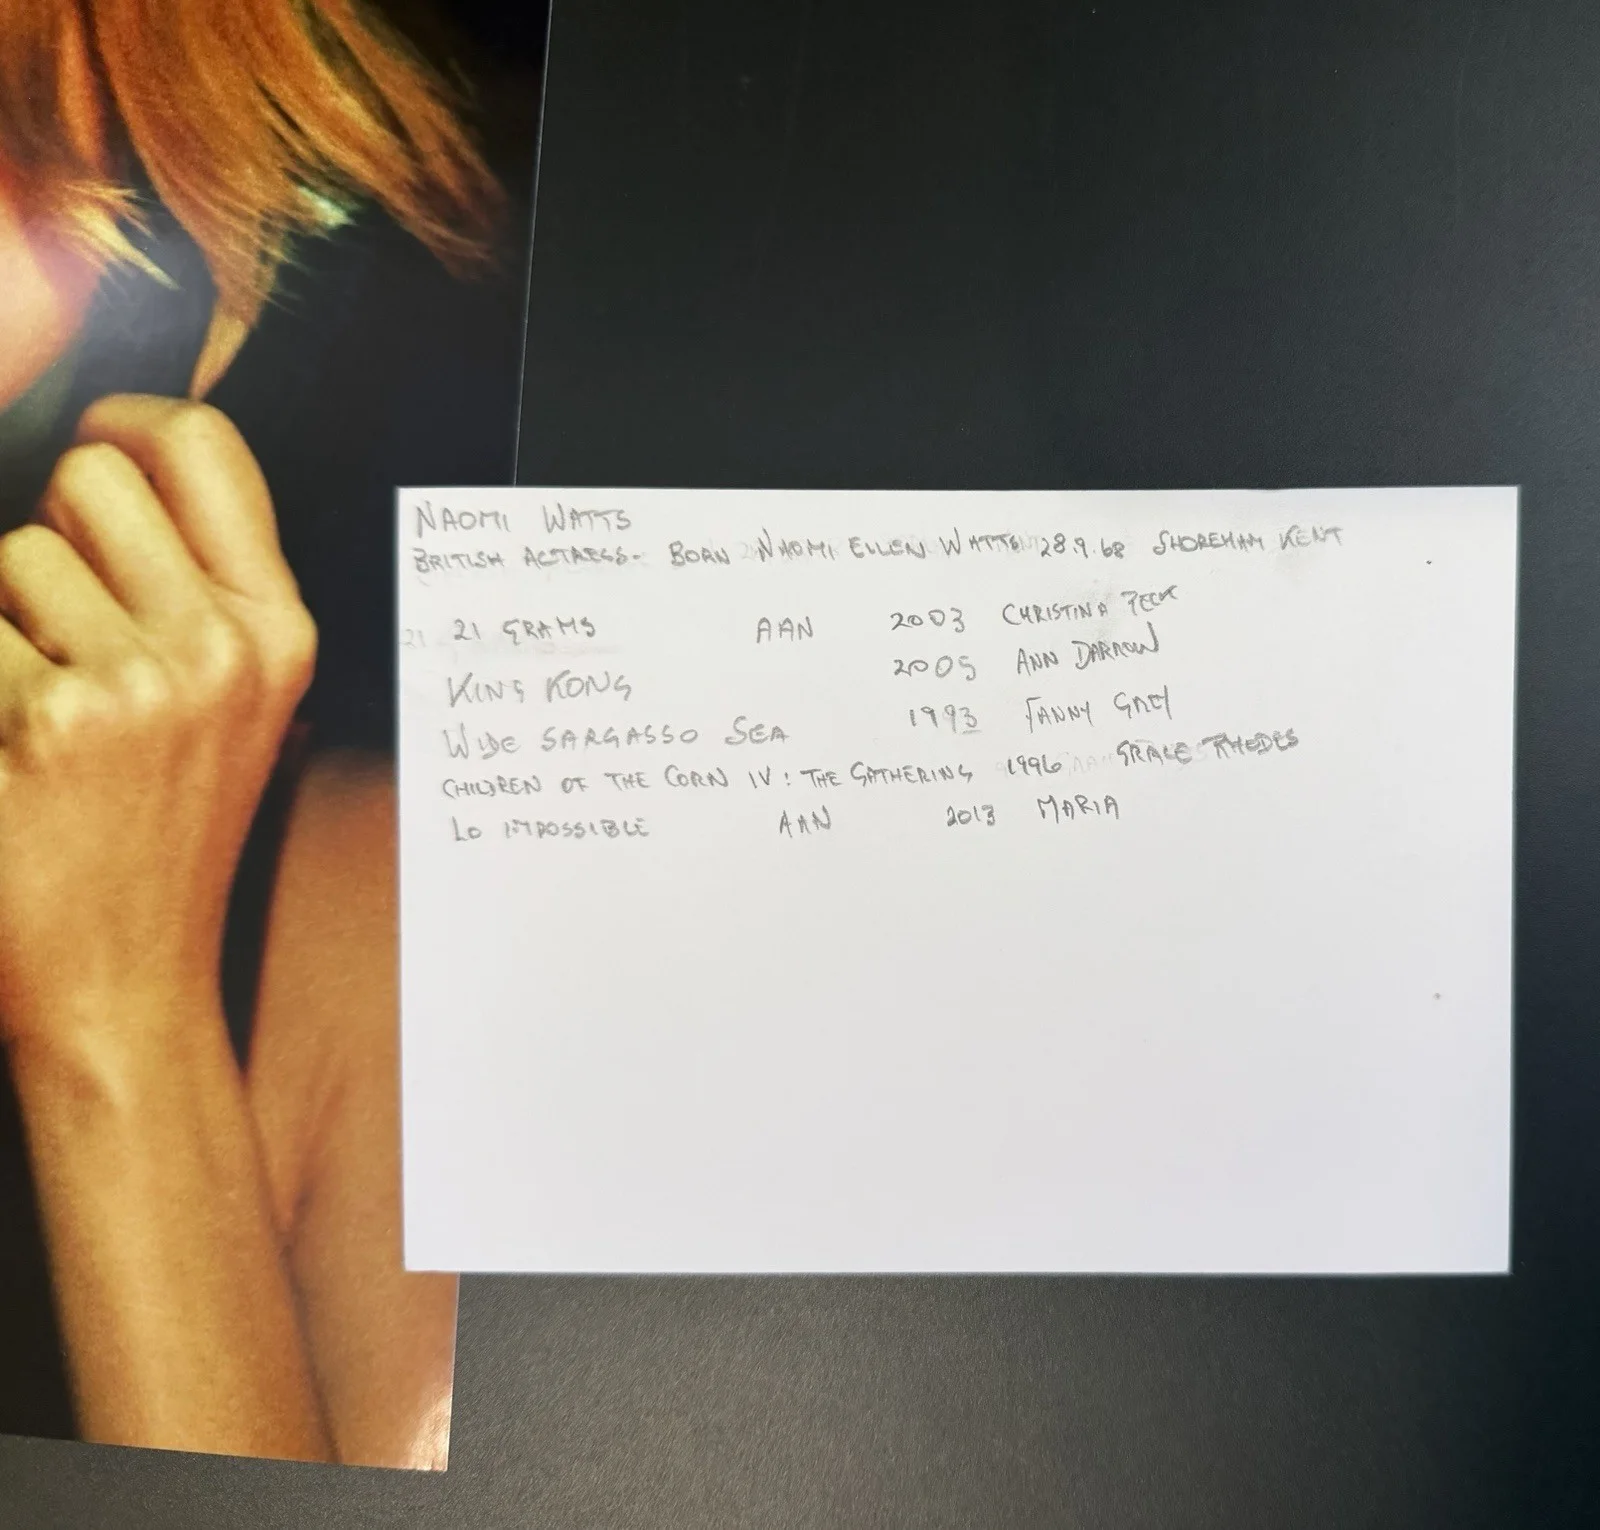 NAOMI WATTS
BRITISH ACTRESS - BORN NAOMI ELLEN WATTS 28.9.68 SHOREHAM KENT
21 GRAMS AAN 2003 CHRISTINA PECK
KING KONG 2005 ANN DARROW
WIDE SARGASSO SEA 1993 FANNY GREY
CHILDREN OF THE CORN IV: THE GATHERING 1996 GRACE RHODES
LO IMPOSSIBLE AAN 2013 MARIA